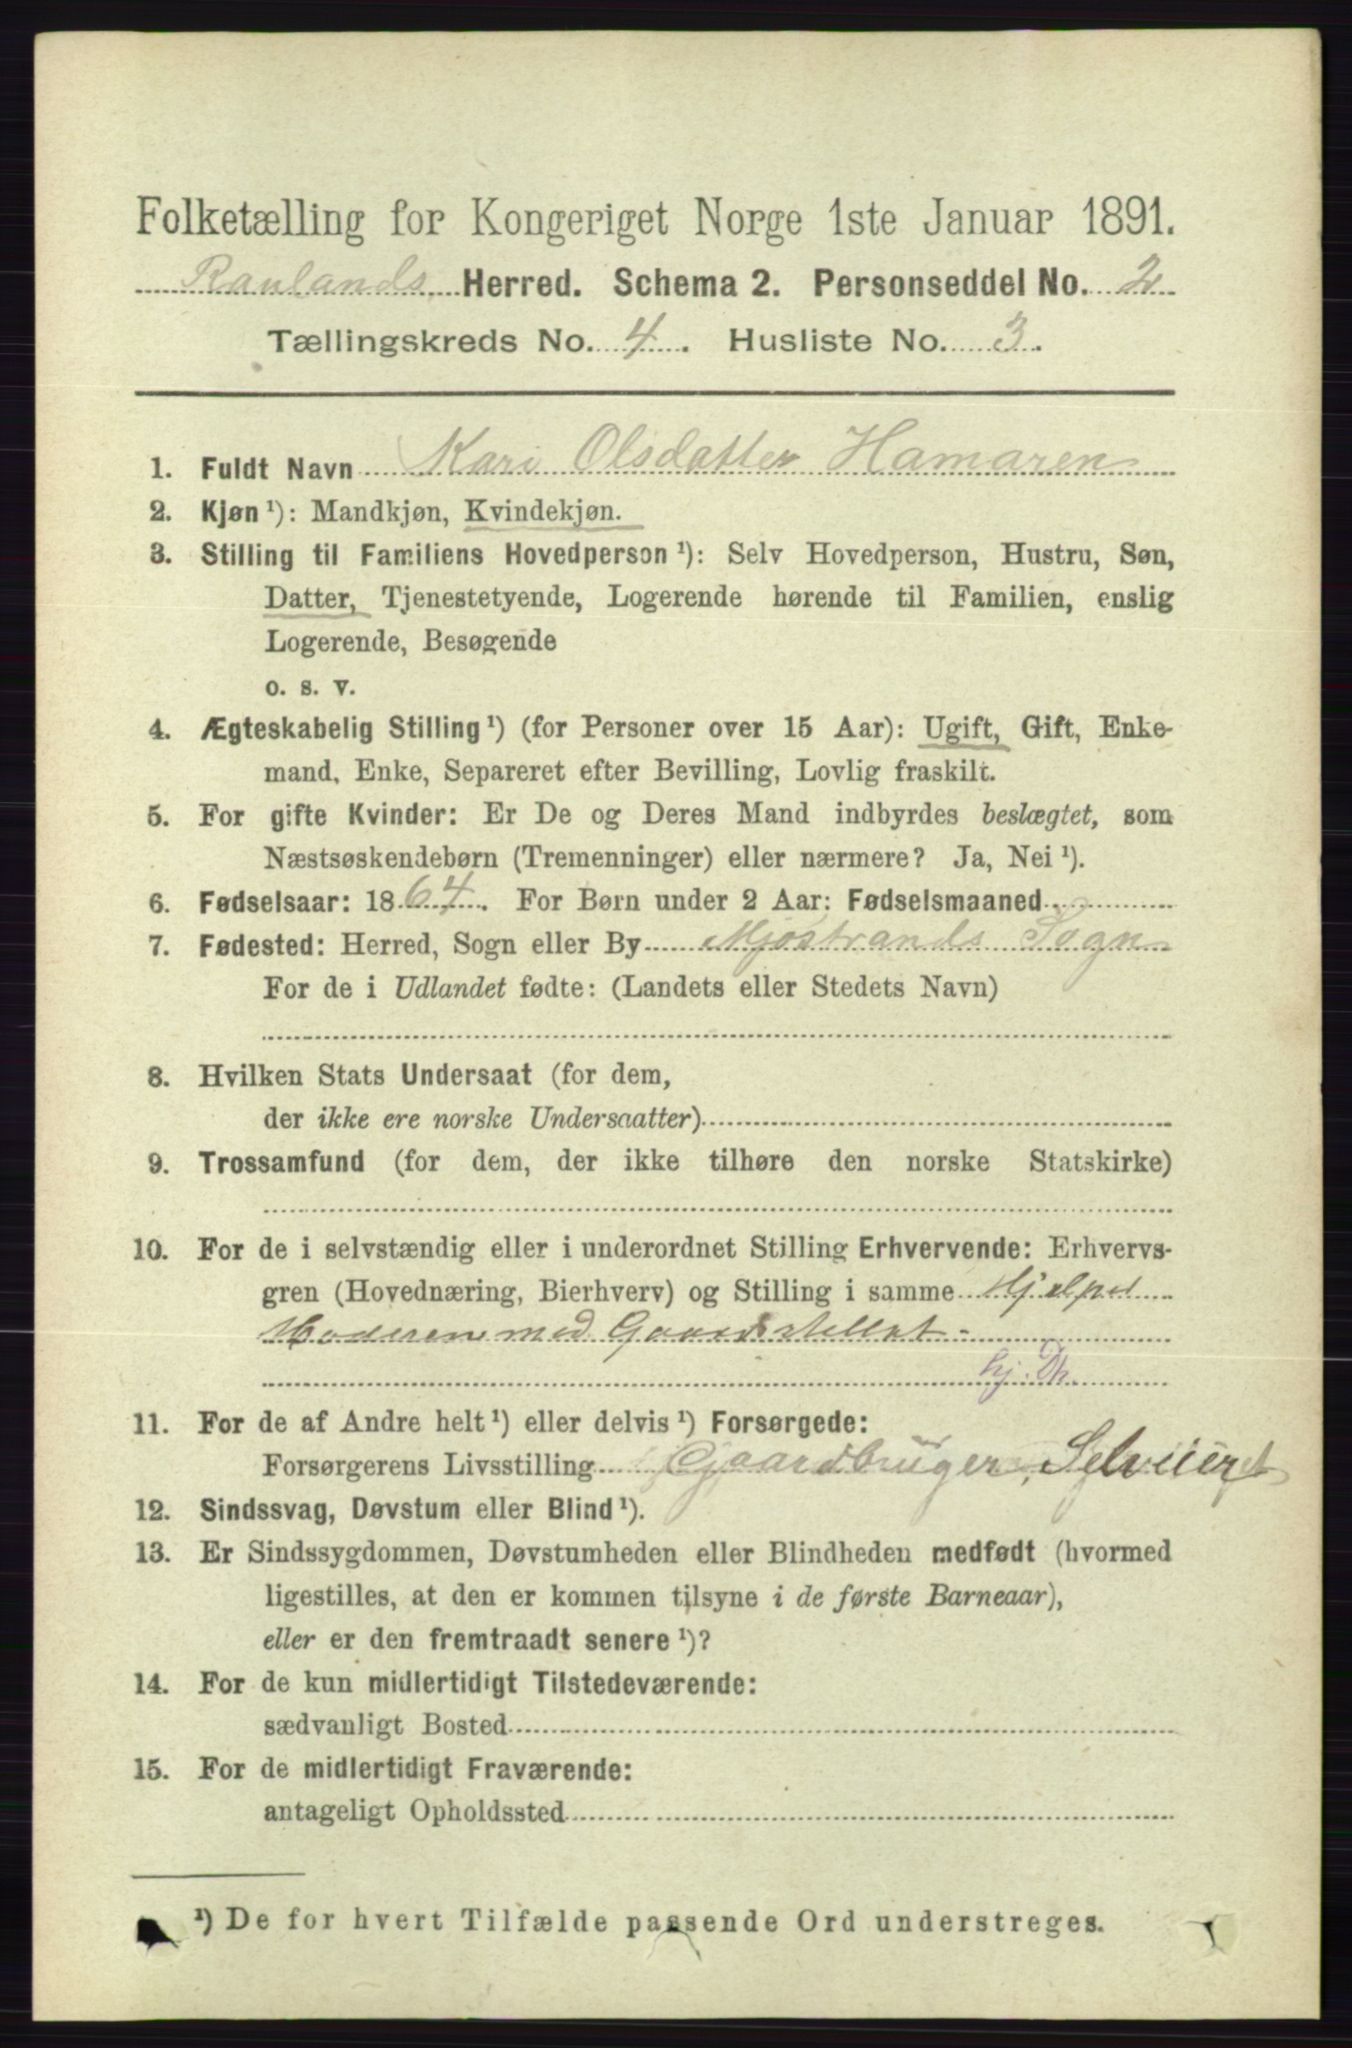 Folketælling for Kongeriget Norge 1ste Januar 1891.
Raulands Herred. Schema 2. Personseddel No. 2
Tællingskreds No. 4. Husliste No. 3.
1. Fuldt Navn Kari Olsdatter Hamaren
2. Kjøn ¹): Mandkjøn, Kvindekjøn.
3. Stilling til Familiens Hovedperson ¹): Selv Hovedperson, Hustru, Søn,
Datter, Tjenestetyende, Logerende hørende til Familien, enslig
Logerende, Besøgende
o. s. v.
4. Ægteskabelig Stilling ¹) (for Personer over 15 Aar): Ugift, Gift, Enke-
mand, Enke, Separeret efter Bevilling, Lovlig fraskilt.
5. For gifte Kvinder: Er De og Deres Mand indbyrdes beslægtet, som
Næstsøskendebørn (Tremenninger) eller nærmere? Ja, Nei ¹).
6. Fødselsaar: 1864. For Børn under 2 Aar: Fødselsmaaned
7. Fødested: Herred, Sogn eller By Mjøstrands Sogn
For de i Udlandet fødte: (Landets eller Stedets Navn)
8. Hvilken Stats Undersaat (for dem,
der ikke ere norske Undersaatter)
9. Trossamfund (for dem, der ikke tilhøre den norske Statskirke)
10. For de i selvstændig eller i underordnet Stilling Erhvervende: Erhvervs-
gren (Hovednæring, Bierhverv) og Stilling i samme Hjelper
Moderen med Gaardstellet -
hj. Dh.
11. For de af Andre helt ¹) eller delvis ¹) Forsørgede:
Forsørgerens Livsstilling Gaardbruger, Selveier
12. Sindssvag, Døvstum eller Blind ¹).
13. Er Sindssygdommen, Døvstumheden eller Blindheden medfødt (hvormed
ligestilles, at den er kommen tilsyne i de første Barneaar),
eller er den fremtraadt senere ¹)?
14. For de kun midlertidigt Tilstedeværende:
sædvanligt Bosted
15. For de midlertidigt Fraværende:
antageligt Opholdssted
¹) De for hvert Tilfælde passende Ord understreges.